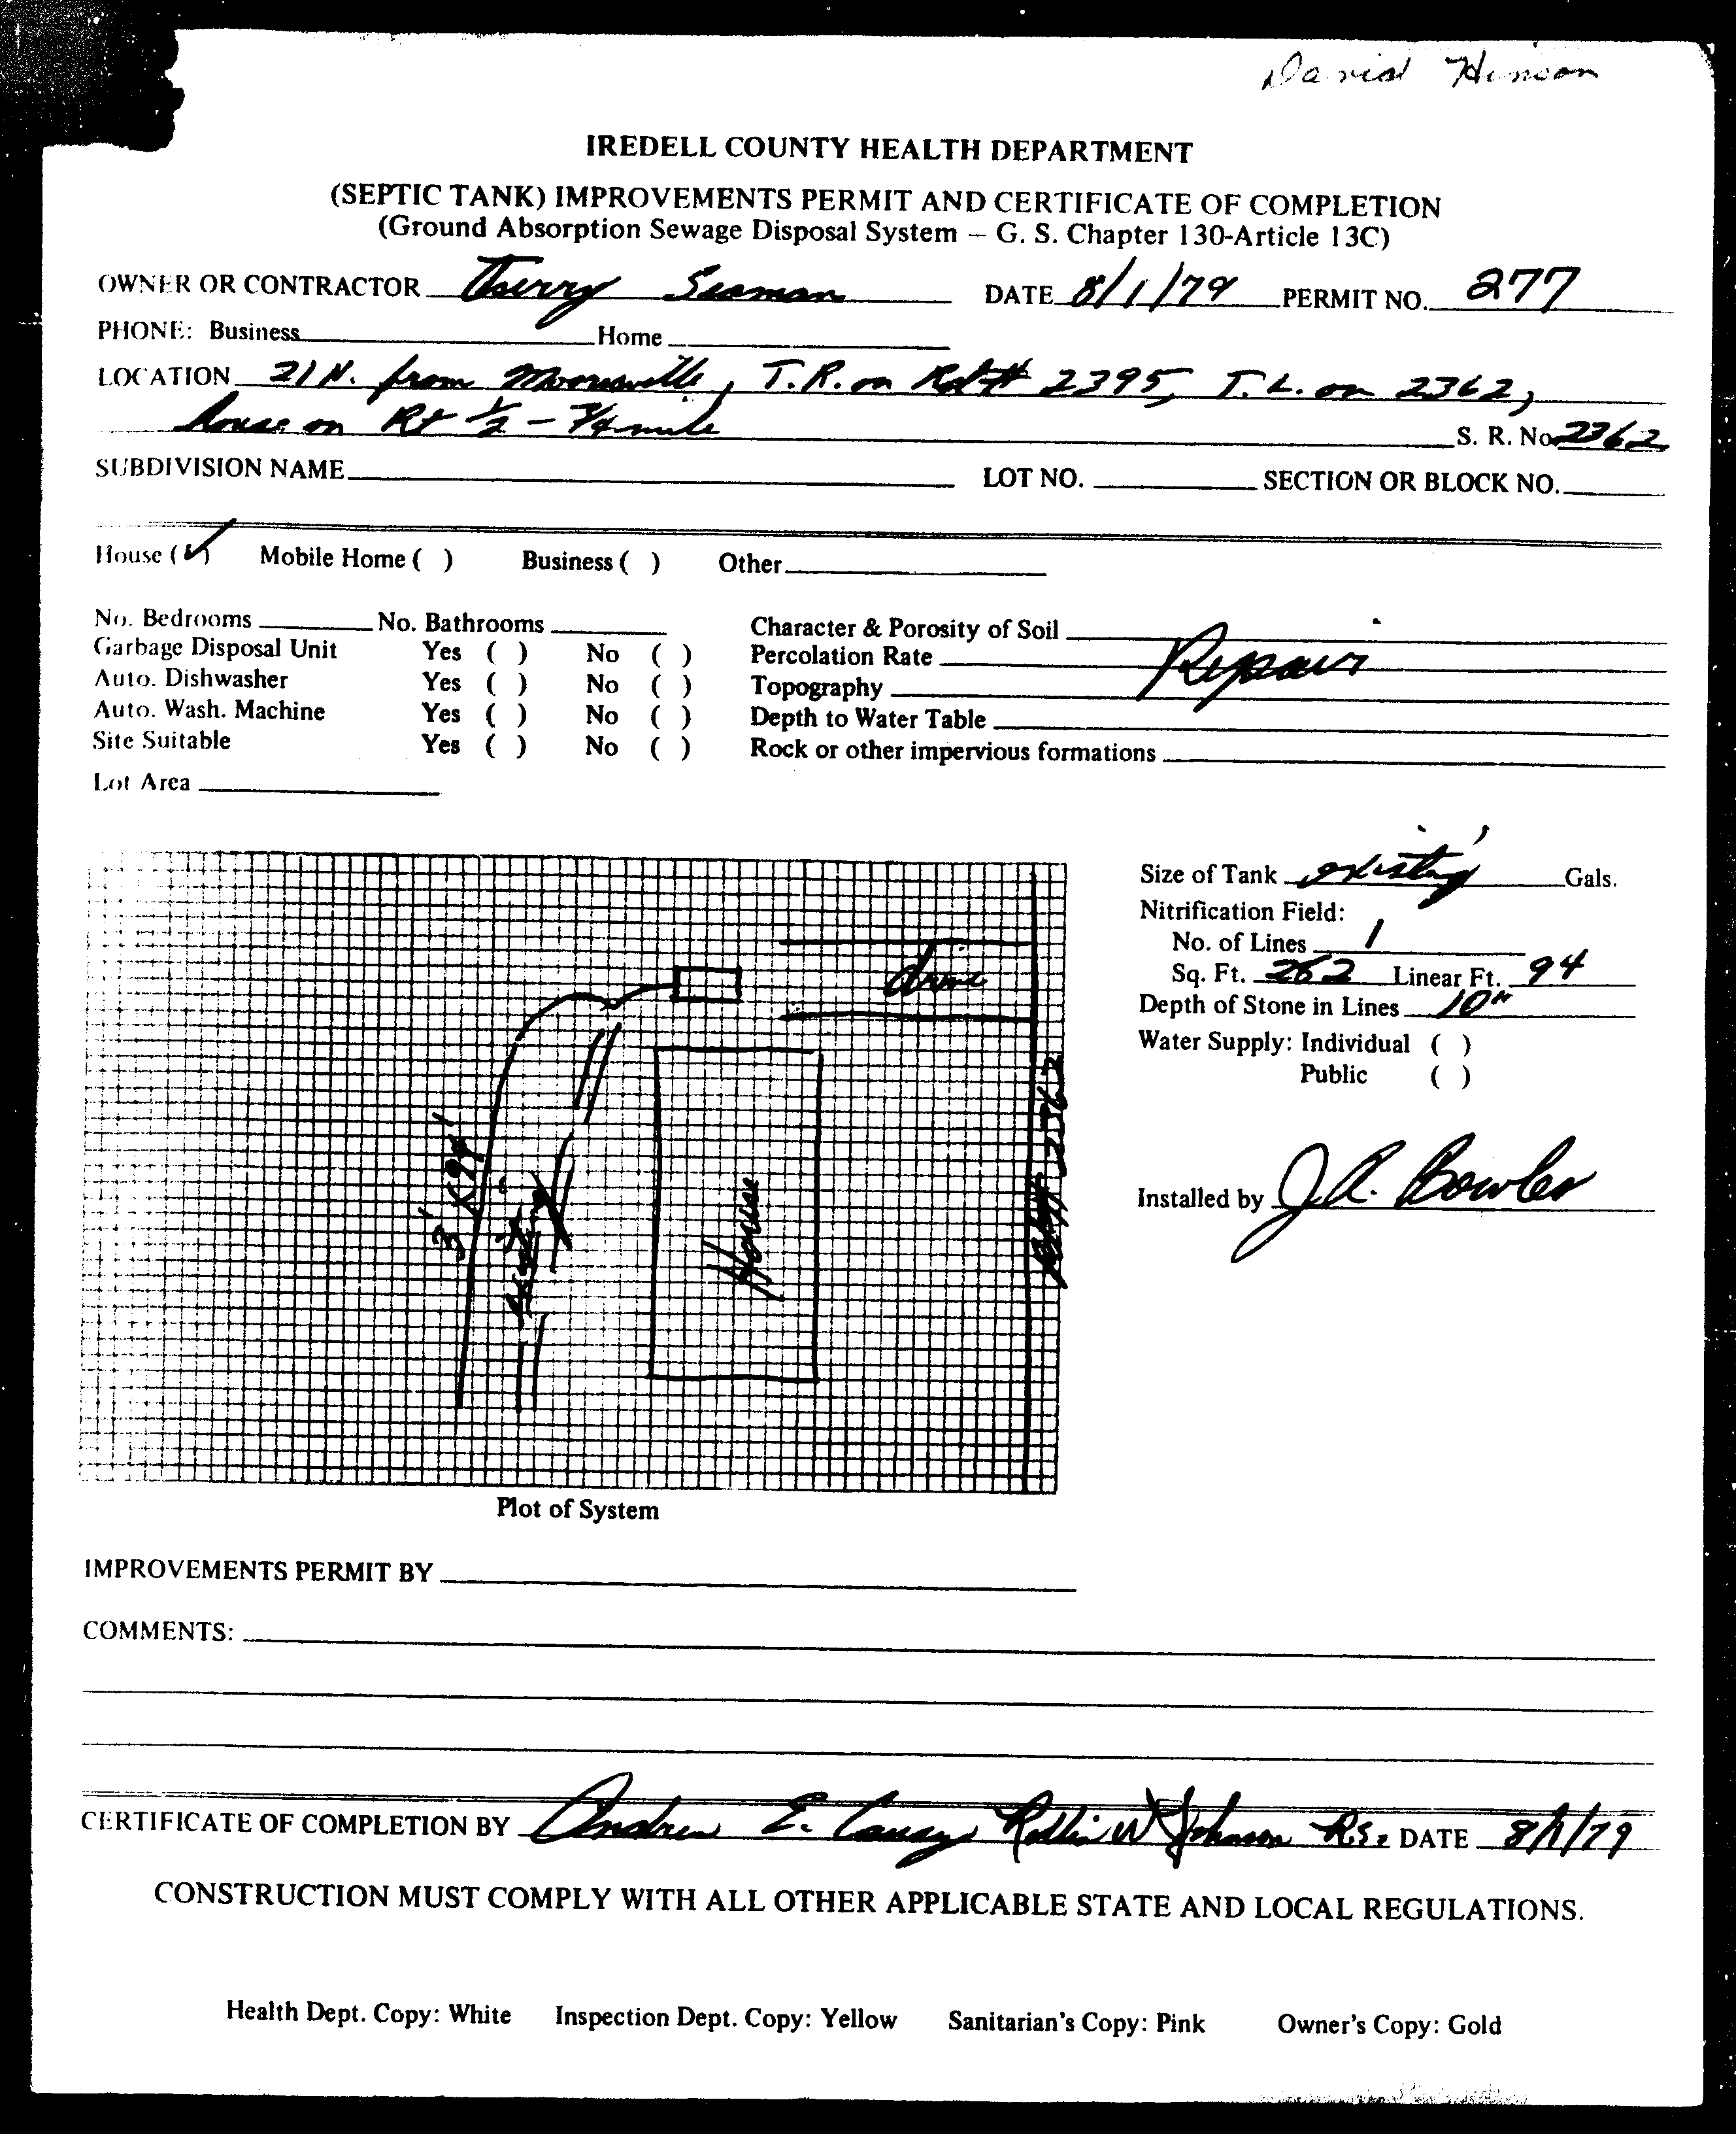 David Hinson
IREDELL COUNTY HEALTH DEPARTMENT
(SEPTIC TANK) IMPROVEMENTS PERMIT AND CERTIFICATE OF COMPLETION
(Ground Absorption Sewage Disposal System – G. S. Chapter 130-Article 13C)
OWNER OR CONTRACTOR Seaman DATE 8/1/79 PERMIT NO. 277
PHONE: Business Home
LOCATION 21 N. from Mooresville, T.R. on Rd# 2395, T.L. on 2362,
house on Rt 1/2 - 3/4 mile S. R. No. 2362
SUBDIVISION NAME LOT NO. SECTION OR BLOCK NO.
House (✓) Mobile Home ( ) Business ( ) Other
No. Bedrooms No. Bathrooms Character & Porosity of Soil
Garbage Disposal Unit Yes ( ) No ( ) Percolation Rate Repair
Auto. Dishwasher Yes ( ) No ( ) Topography
Auto. Wash. Machine Yes ( ) No ( ) Depth to Water Table
Site Suitable Yes ( ) No ( ) Rock or other impervious formations
Lot Area
Size of Tank existing Gals.
Nitrification Field:
No. of Lines 1
Sq. Ft. 282 Linear Ft. 94
Depth of Stone in Lines 10"
Water Supply: Individual ( )
Public ( )
Installed by J.A. Bowles
drive
3' x 94'
existing
House
Rd# 2362
Plot of System
IMPROVEMENTS PERMIT BY
COMMENTS:
CERTIFICATE OF COMPLETION BY Andrew E. W Johnson R.S. DATE 8/1/79
CONSTRUCTION MUST COMPLY WITH ALL OTHER APPLICABLE STATE AND LOCAL REGULATIONS.
Health Dept. Copy: White Inspection Dept. Copy: Yellow Sanitarian's Copy: Pink Owner's Copy: Gold